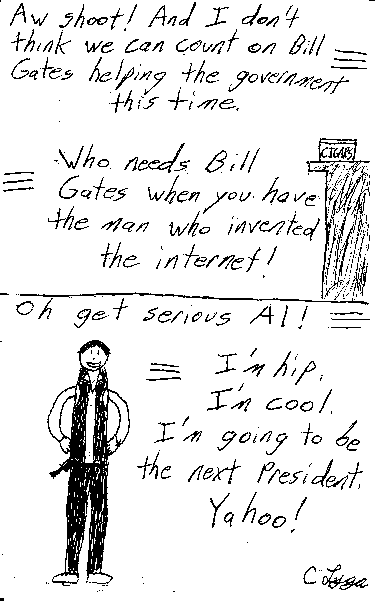 Aw shoot! And I don't
think we can count on Bill
Gates helping the government
this time.
CIGARS
Who needs Bill
Gates when you have
the man who invented
the internet!
Oh get serious Al!
I'm hip.
I'm cool.
I'm going to be
the next President.
Yahoo!
C